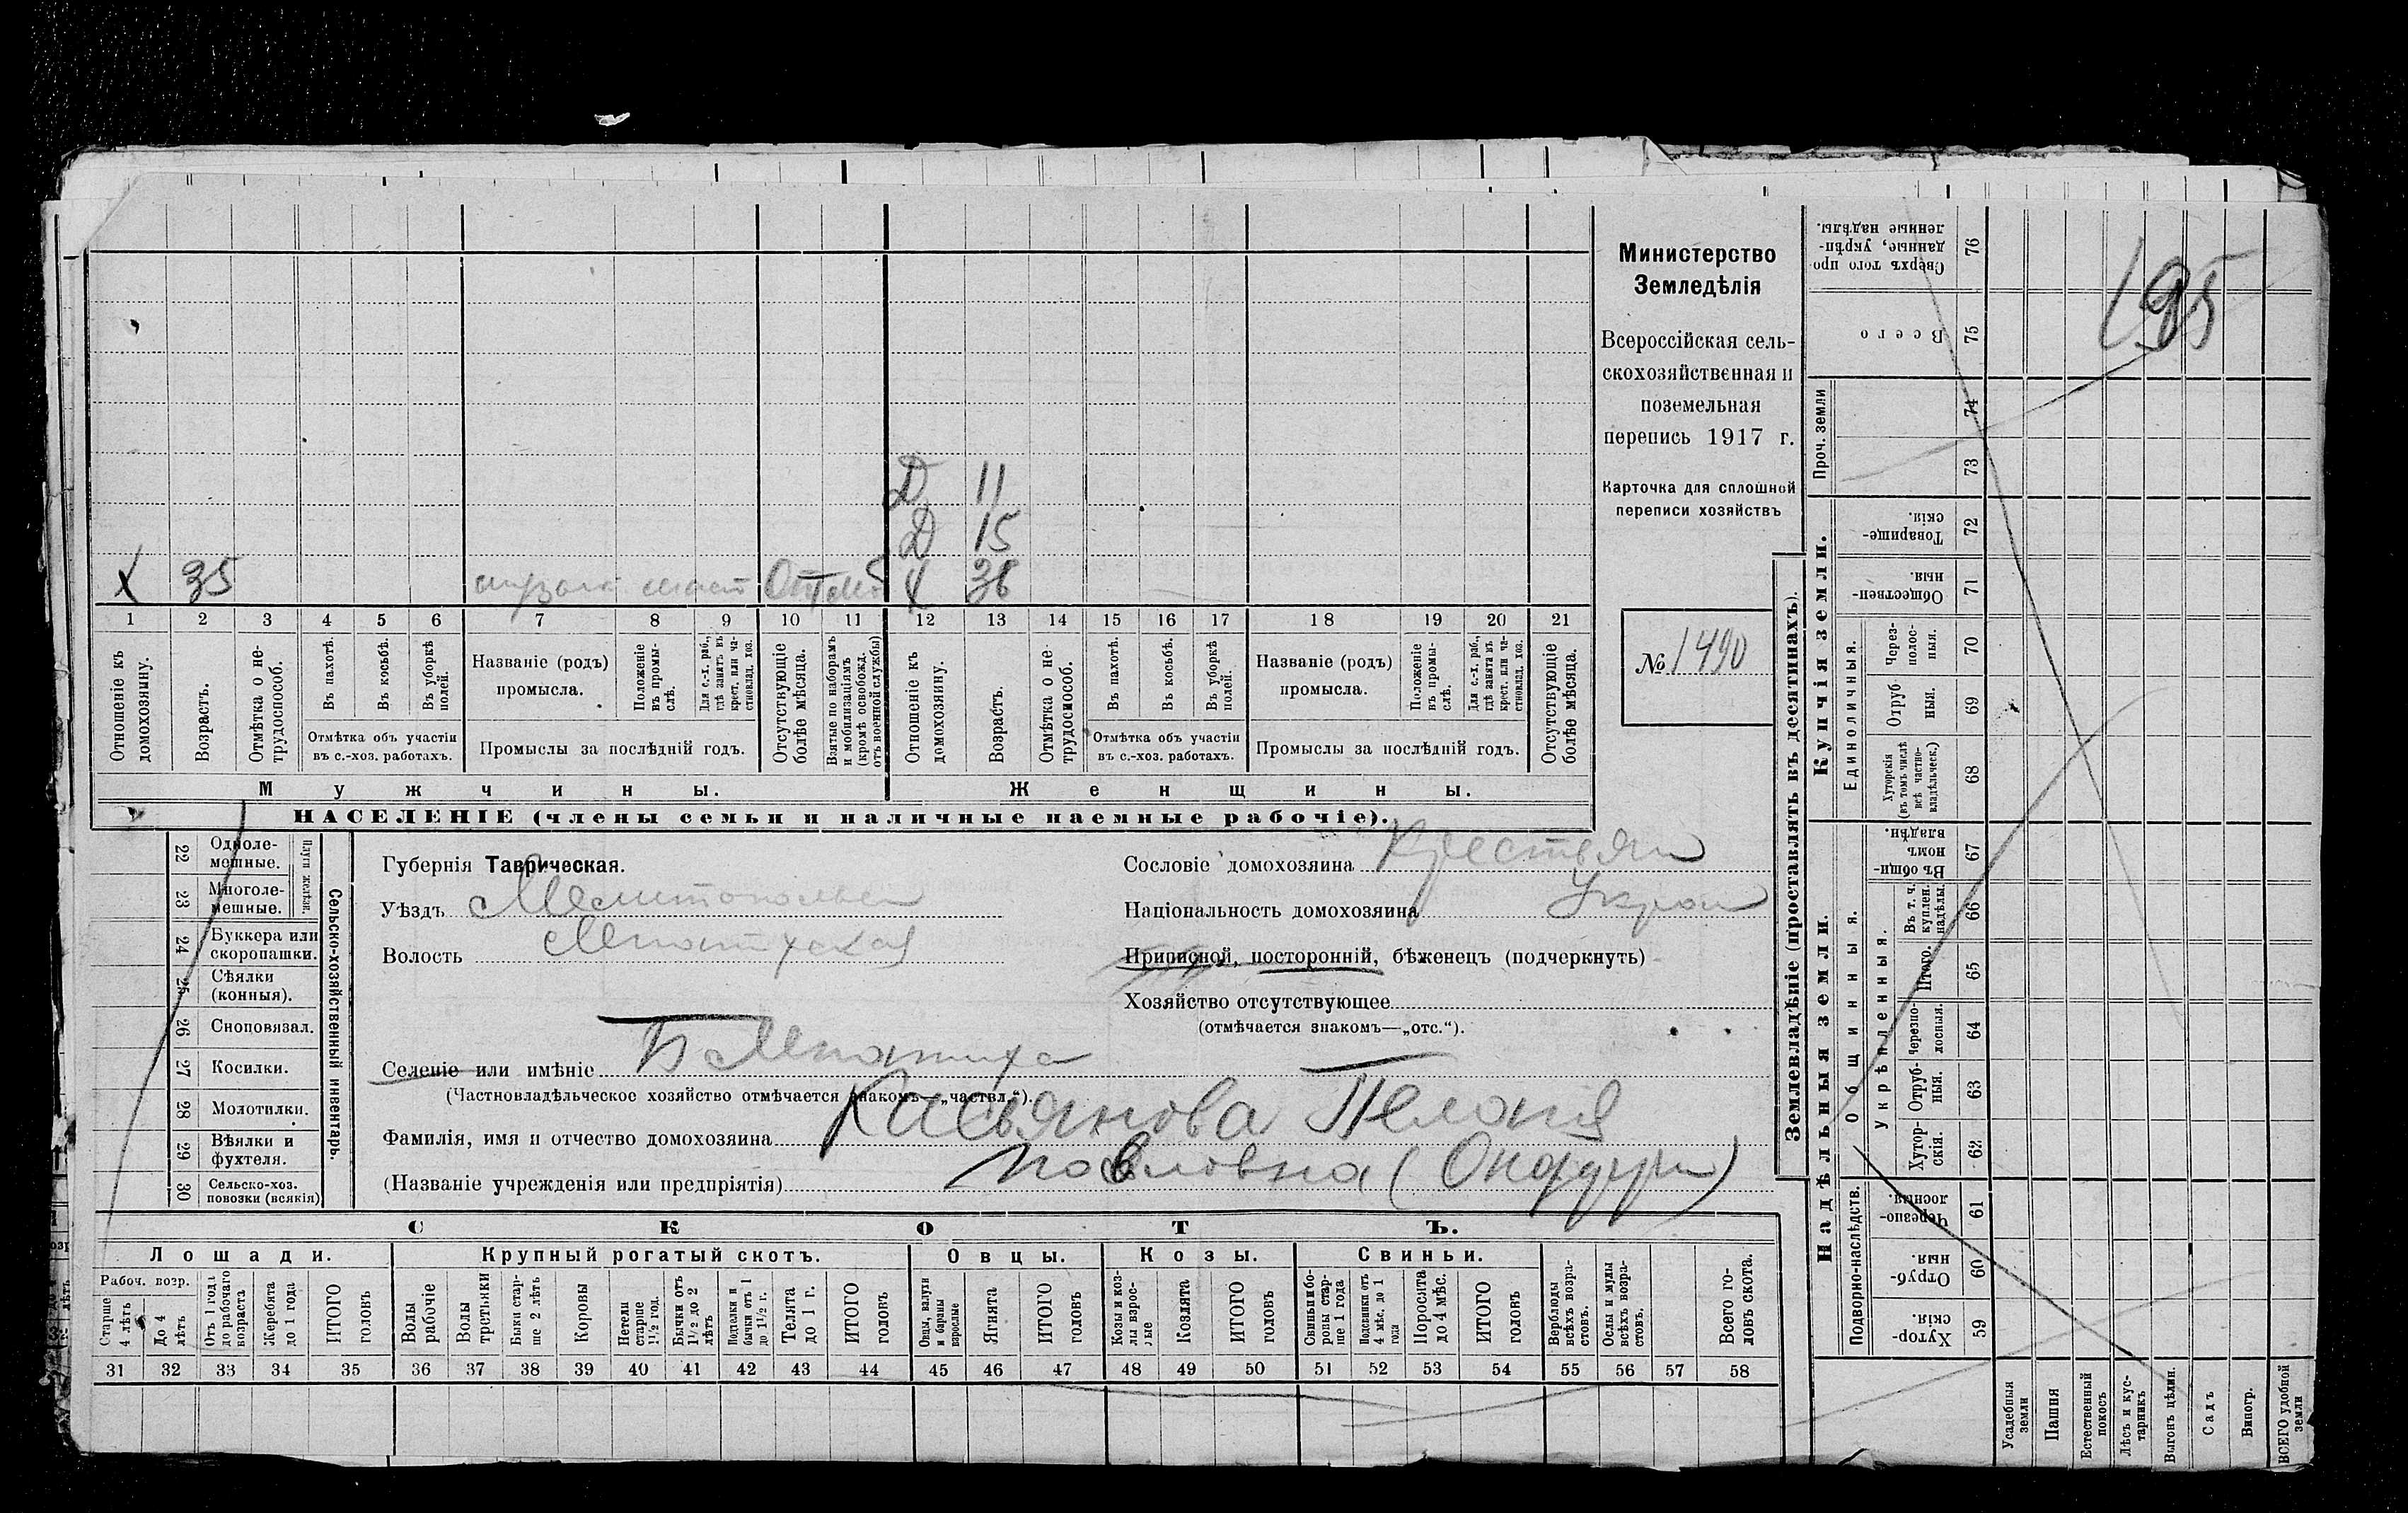 Министерство
Земледѣлія
Всероссійская сель-
скохозяйственная и
поземельная
перепись 1917 г.
Карточка для сплошной
переписи хозяйствъ
№ 1490
195
Д 11
Д 15
Х 35 Х 36
1 2 3 4 5 6 7 8 9 10 11 12 13 14 15 16 17 18 19 20 21
Отношеніе къ домохозяину.
Возрастъ.
Отмѣтка о не-трудоспособ.
Въ пахотѣ.
Въ косьбѣ.
Въ уборкѣ полей.
Отмѣтка объ участіи въ с.-хоз. работахъ.
Названіе (родъ) промысла.
Положеніе въ промы-слѣ.
Для с.-х. раб., гдѣ занятъ въ крест. или ча-стновлад. хоз.
Промыслы за послѣдній годъ.
Отсутствующіе болѣе мѣсяца.
Взятые по наборамъ и мобилизаціямъ (кромѣ освобожд. отъ военной службы)
Отношеніе къ домохозяину.
Возрастъ.
Отмѣтка о не-трудоспособ.
Въ пахотѣ.
Въ косьбѣ.
Въ уборкѣ полей.
Отмѣтка объ участіи въ с.-хоз. работахъ.
Названіе (родъ) промысла.
Положеніе въ промы-слѣ.
Для с.-х. раб., гдѣ занята въ крест. или ча-стновлад. хоз.
Промыслы за послѣдній годъ.
Отсутствующіе болѣе мѣсяца.
Мужчины. Женщины.
НАСЕЛЕНІЕ (члены семьи и наличные наемные рабочіе).
22 Одноле-мешные.
23 Многоле-мешные.
Плуги желѣзн.
24 Буккера или скоропашки.
25 Сѣялки (конныя).
26 Сноповязал.
27 Косилки.
28 Молотилки.
29 Вѣялки и фухтеля.
30 Сельско-хоз. повозки (всякія)
Сельско-хозяйственный инвентарь.
Губернія Таврическая.
Уѣздъ Мелитопольск
Волость Лепатихская
Селеніе или имѣніе Б Лепатиха
(Частновладѣльческое хозяйство отмѣчается знакомъ—„частвл.“).
Фамилія, имя и отчество домохозяина Касьянова Пелагия
(Названіе учрежденія или предпріятія) Павловна
Сословіе домохозяина Крестьян
Національность домохозяина Украин
Приписной, посторонній, бѣженецъ (подчеркнуть)
Хозяйство отсутствующее
(отмѣчается знакомъ—„отс.“).
СКОТЪ.
Лошади. Крупный рогатый скотъ. Овцы. Козы. Свиньи.
Рабоч. возр.
Старше 4 лѣтъ
До 4 лѣтъ
Отъ 1 года до рабочаго возраста
Жеребята до 1 года
ИТОГО головъ
Волы рабочіе
Волы третьяки
Быки стар-ше 2 лѣтъ
Коровы
Нетели старше 1½ год.
Бычки отъ 1½ до 2 лѣтъ
Подтелки и бычки отъ 1 до 1½ г.
Телята до 1 г.
ИТОГО головъ
Овцы, валухи и бараны взрослые
Ягнята
ИТОГО головъ
Козы и коз-лы взрос-лые
Козлята
ИТОГО головъ
Свиньи и бо-ровы стар-ше 1 года
Подсвинки отъ 4 мѣс. до 1 года
Поросята до 4 мѣс.
ИТОГО головъ
Верблюды всѣхъ возра-стовъ.
Ослы и мулы всѣхъ возра-стовъ.
Всего го-ловъ скота.
31 32 33 34 35 36 37 38 39 40 41 42 43 44 45 46 47 48 49 50 51 52 53 54 55 56 57 58
Землевладѣніе (проставлять въ десятинахъ).
Сверхъ того про-данные, укрѣп-ленные надѣлы. 76
Всего 75
Проч. земли
74
73
Купчія земли.
Товарище-скія. 72
Обществен-ныя. 71
Единоличныя.
Через-полос-ныя. 70
Отруб-ныя. 69
Хуторскія (въ томъ числѣ всѣ частно-владѣльческ.) 68
Надѣльныя земли.
Общинныя.
Въ общин-номъ владѣн. 67
Укрѣпленныя.
Въ т. ч. куплен. надѣлы. 66
Итого. 65
Черезпо-лосныя. 64
Отруб-ныя. 63
Хутор-скія. 62
Подворно-наслѣдств.
Черезпо-лосныя. 61
Отруб-ныя. 60
Хутор-скія. 59
Усадебныя земли
Пашня
Естественный покосъ
Лѣсъ и кус-тарникъ
Выгонъ цѣлин.
Садъ
Виногр.
ВСЕГО удобной земли